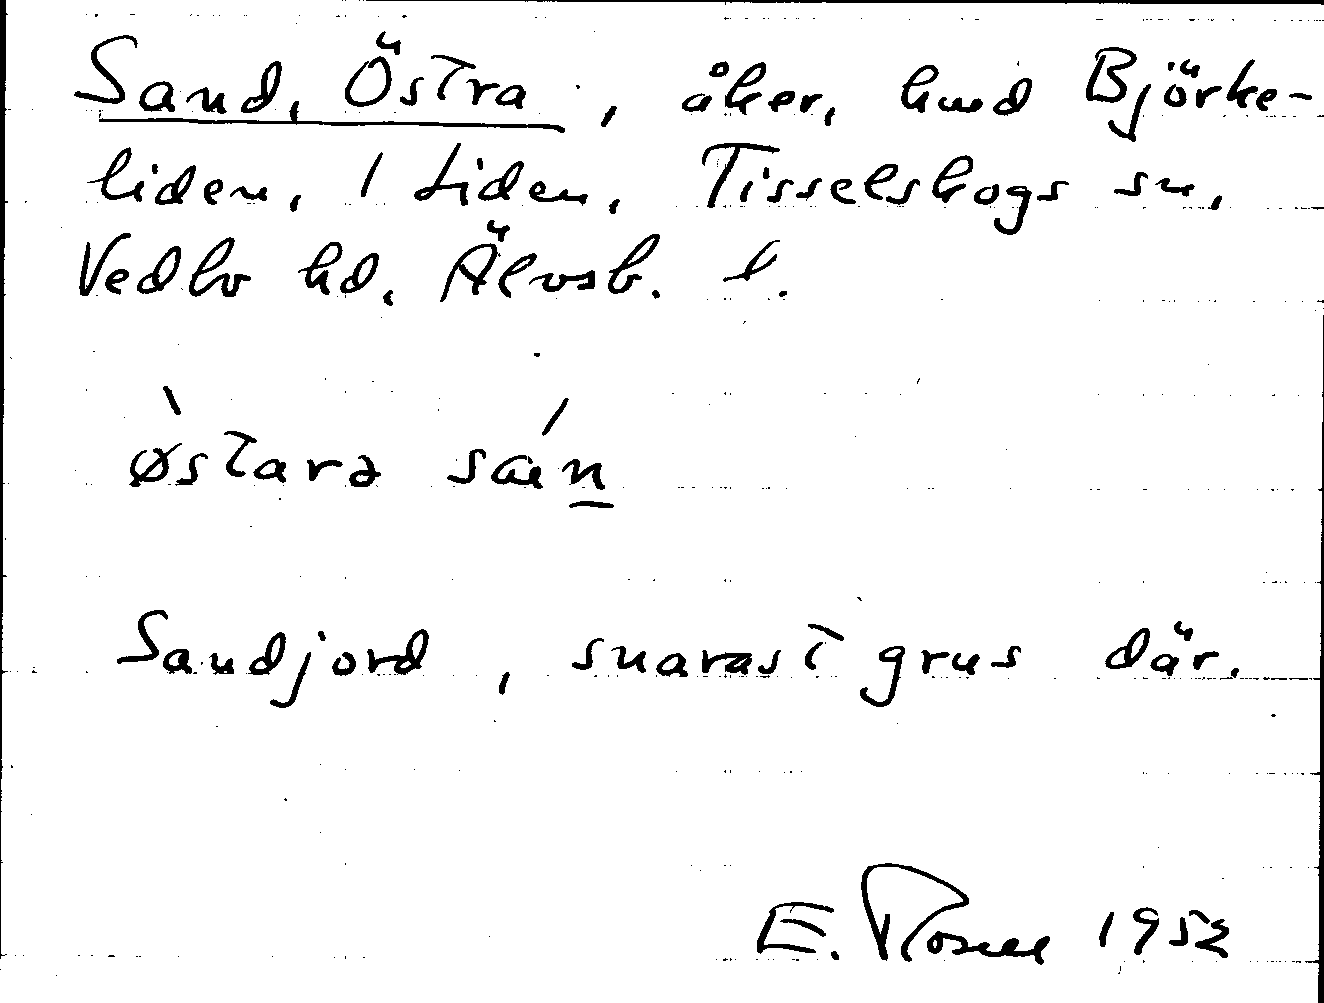 Sand, Östra, åker, hmd Björke-
liden, 1 Liden, Tisselskogs sn,
Vedbo hd, Älvsb. l.
østarə sæn
Sandjord, snarast grus där.
E. Rosell 1952